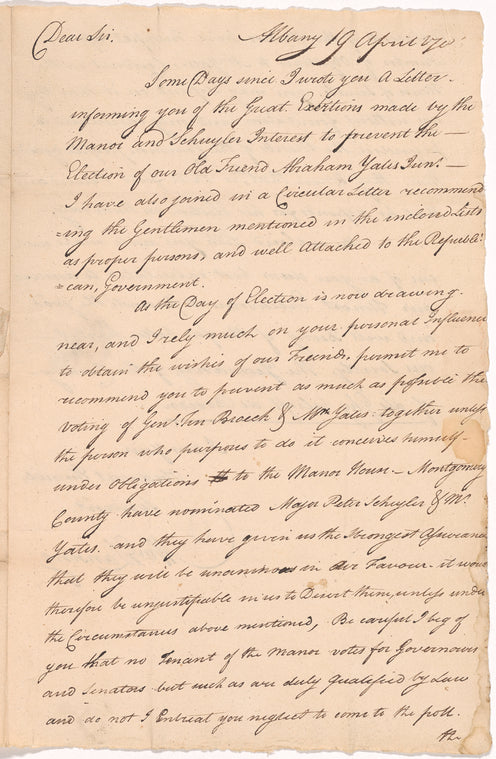 Dear Sir. Albany 19 April 178
Some Days since I wrote you A Letter.
informing you of the Great Exertions made by the
Manor and Schuyler Interest to prevent the —
Election of our Old Friend Abraham Yates Junr. —
I have also joined in a Circular Letter recommend
=ing the Gentlemen mentioned in the inclosd Lists
as proper persons, and well Attached to the Republi:
=can, Government.
As the Day of Election is now drawing.
near, and I rely much on your personal Influence
to obtain the wishes of our Freinds, permit me to
recommend you to prevent as much as possible the
voting of Genl. Ten Broeck & Mr. Yates together unless
the person who purposes to do it conceives himself
under Obligations to the Manor House. — Montgomery
County have nominated Major Peter Schuyler & Mr.
Yates. and they have given us the Strongest Assurance
that they will be unanimous in their Favour. it would
therefore be unjustifiable in us to Desert them, unless under
the Circumstances above mentioned, Be careful I beg of
you that no Tenant of the Manor votes for Governour
and Senators but such as are duly qualified by Law
and do not I Entreat you neglect to come to the poll.
the